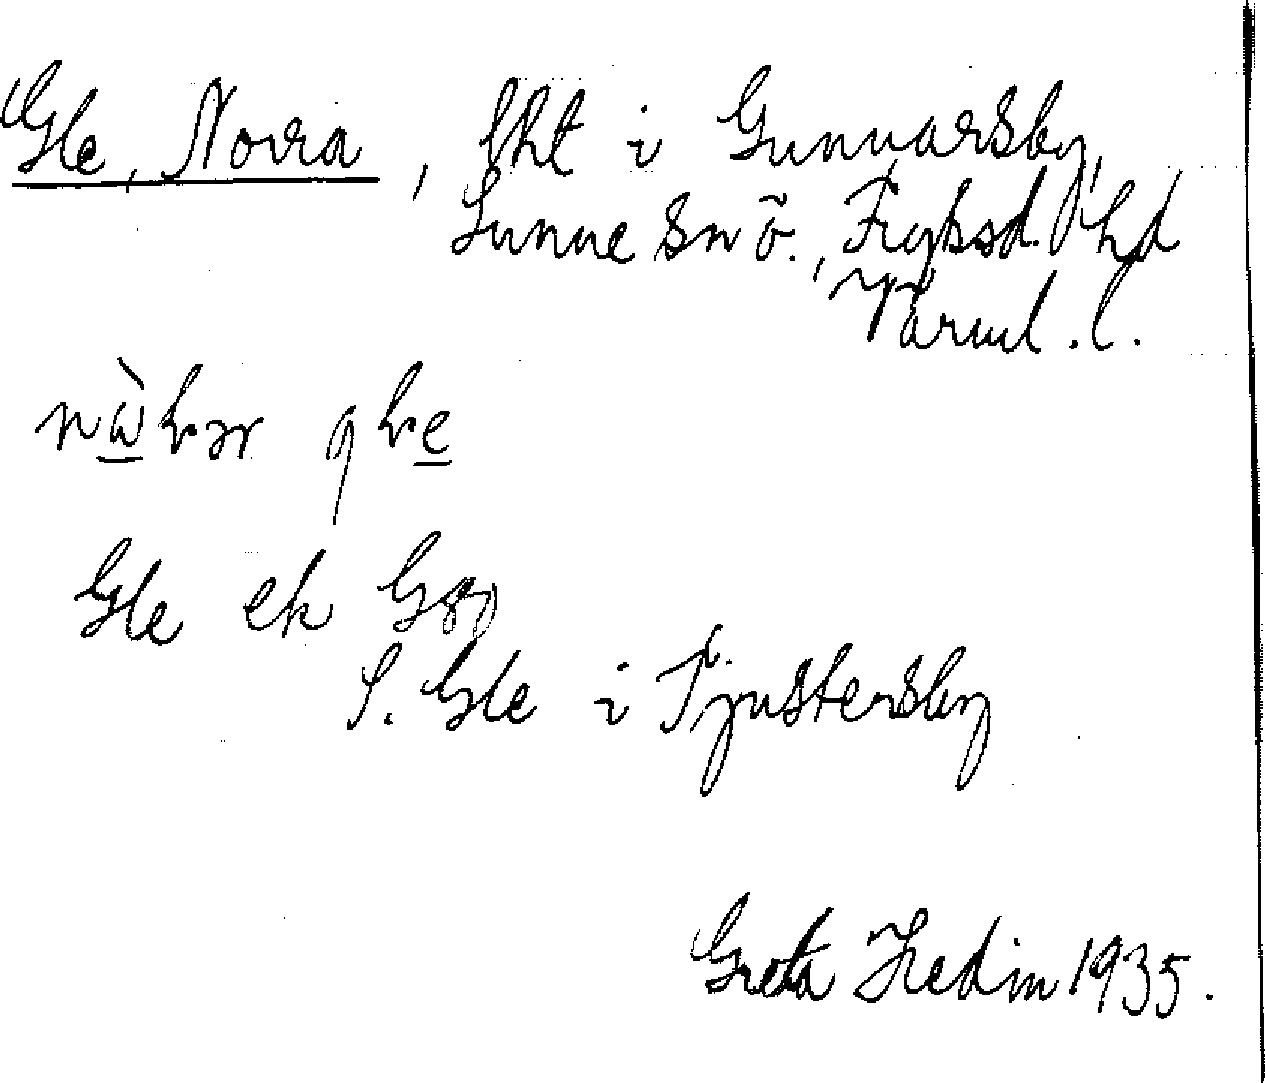 Gle, Norra, fht i Gunnarsby,
Sunne sn ö., Fryksd. hd
Värml. l.
Gle ek
S. Gle i Tjustersby
Greta Hedin 1935.